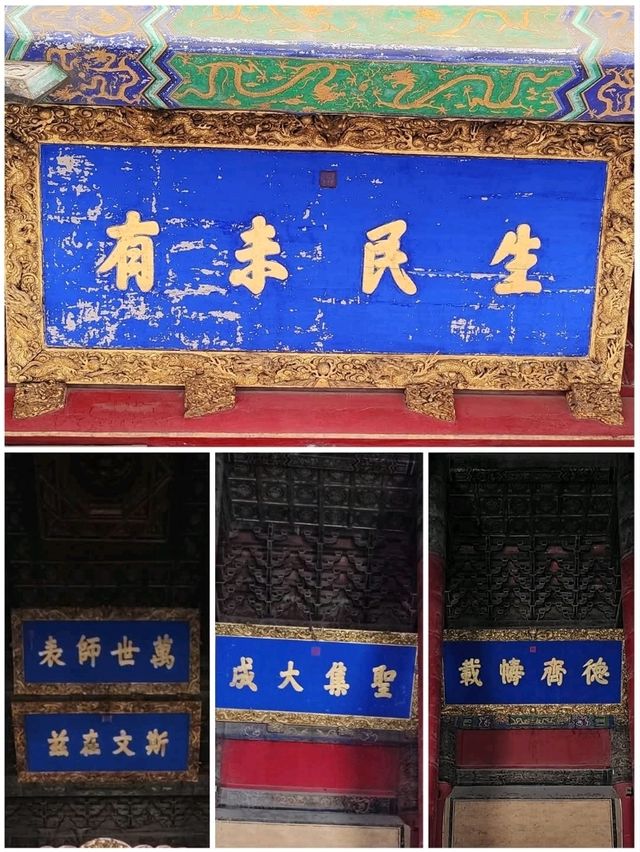 生民未有
萬世師表
斯文在兹
聖集大成
德齊幬載